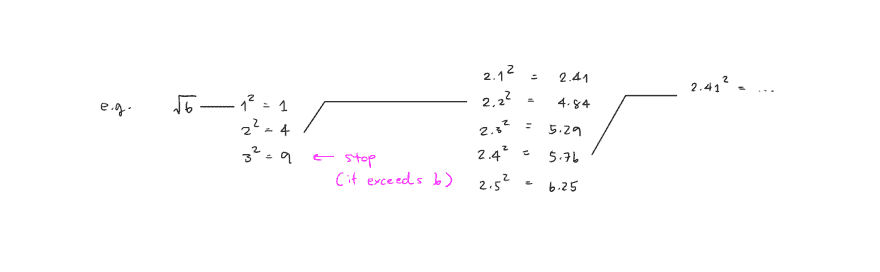 e.g. √6 1² = 1
2² = 4
3² = 9 ← stop
(it exceeds 6)
2.1² = 2.41
2.2² = 4.84
2.3² = 5.29
2.4² = 5.76
2.5² = 6.25
2.41² = ...